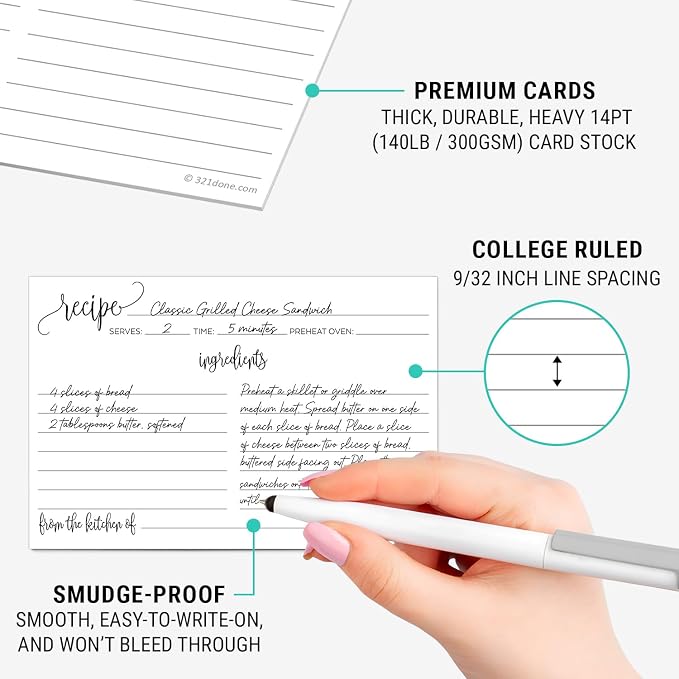 PREMIUM CARDS
THICK, DURABLE, HEAVY 14PT
(140LB / 300GSM) CARD STOCK
© 321done.com
COLLEGE RULED
9/32 INCH LINE SPACING
recipe Classic Grilled Cheese Sandwich
SERVES: 2 TIME: 5 minutes PREHEAT OVEN:
ingredients
4 slices of bread
4 slices of cheese
2 tablespoons butter, softened
Preheat a skillet or griddle over
medium heat. Spread butter on one side
of each slice of bread. Place a slice
of cheese between two slices of bread,
buttered side facing out.
sandwiches
until
from the kitchen of
SMUDGE-PROOF
SMOOTH, EASY-TO-WRITE-ON,
AND WON'T BLEED THROUGH